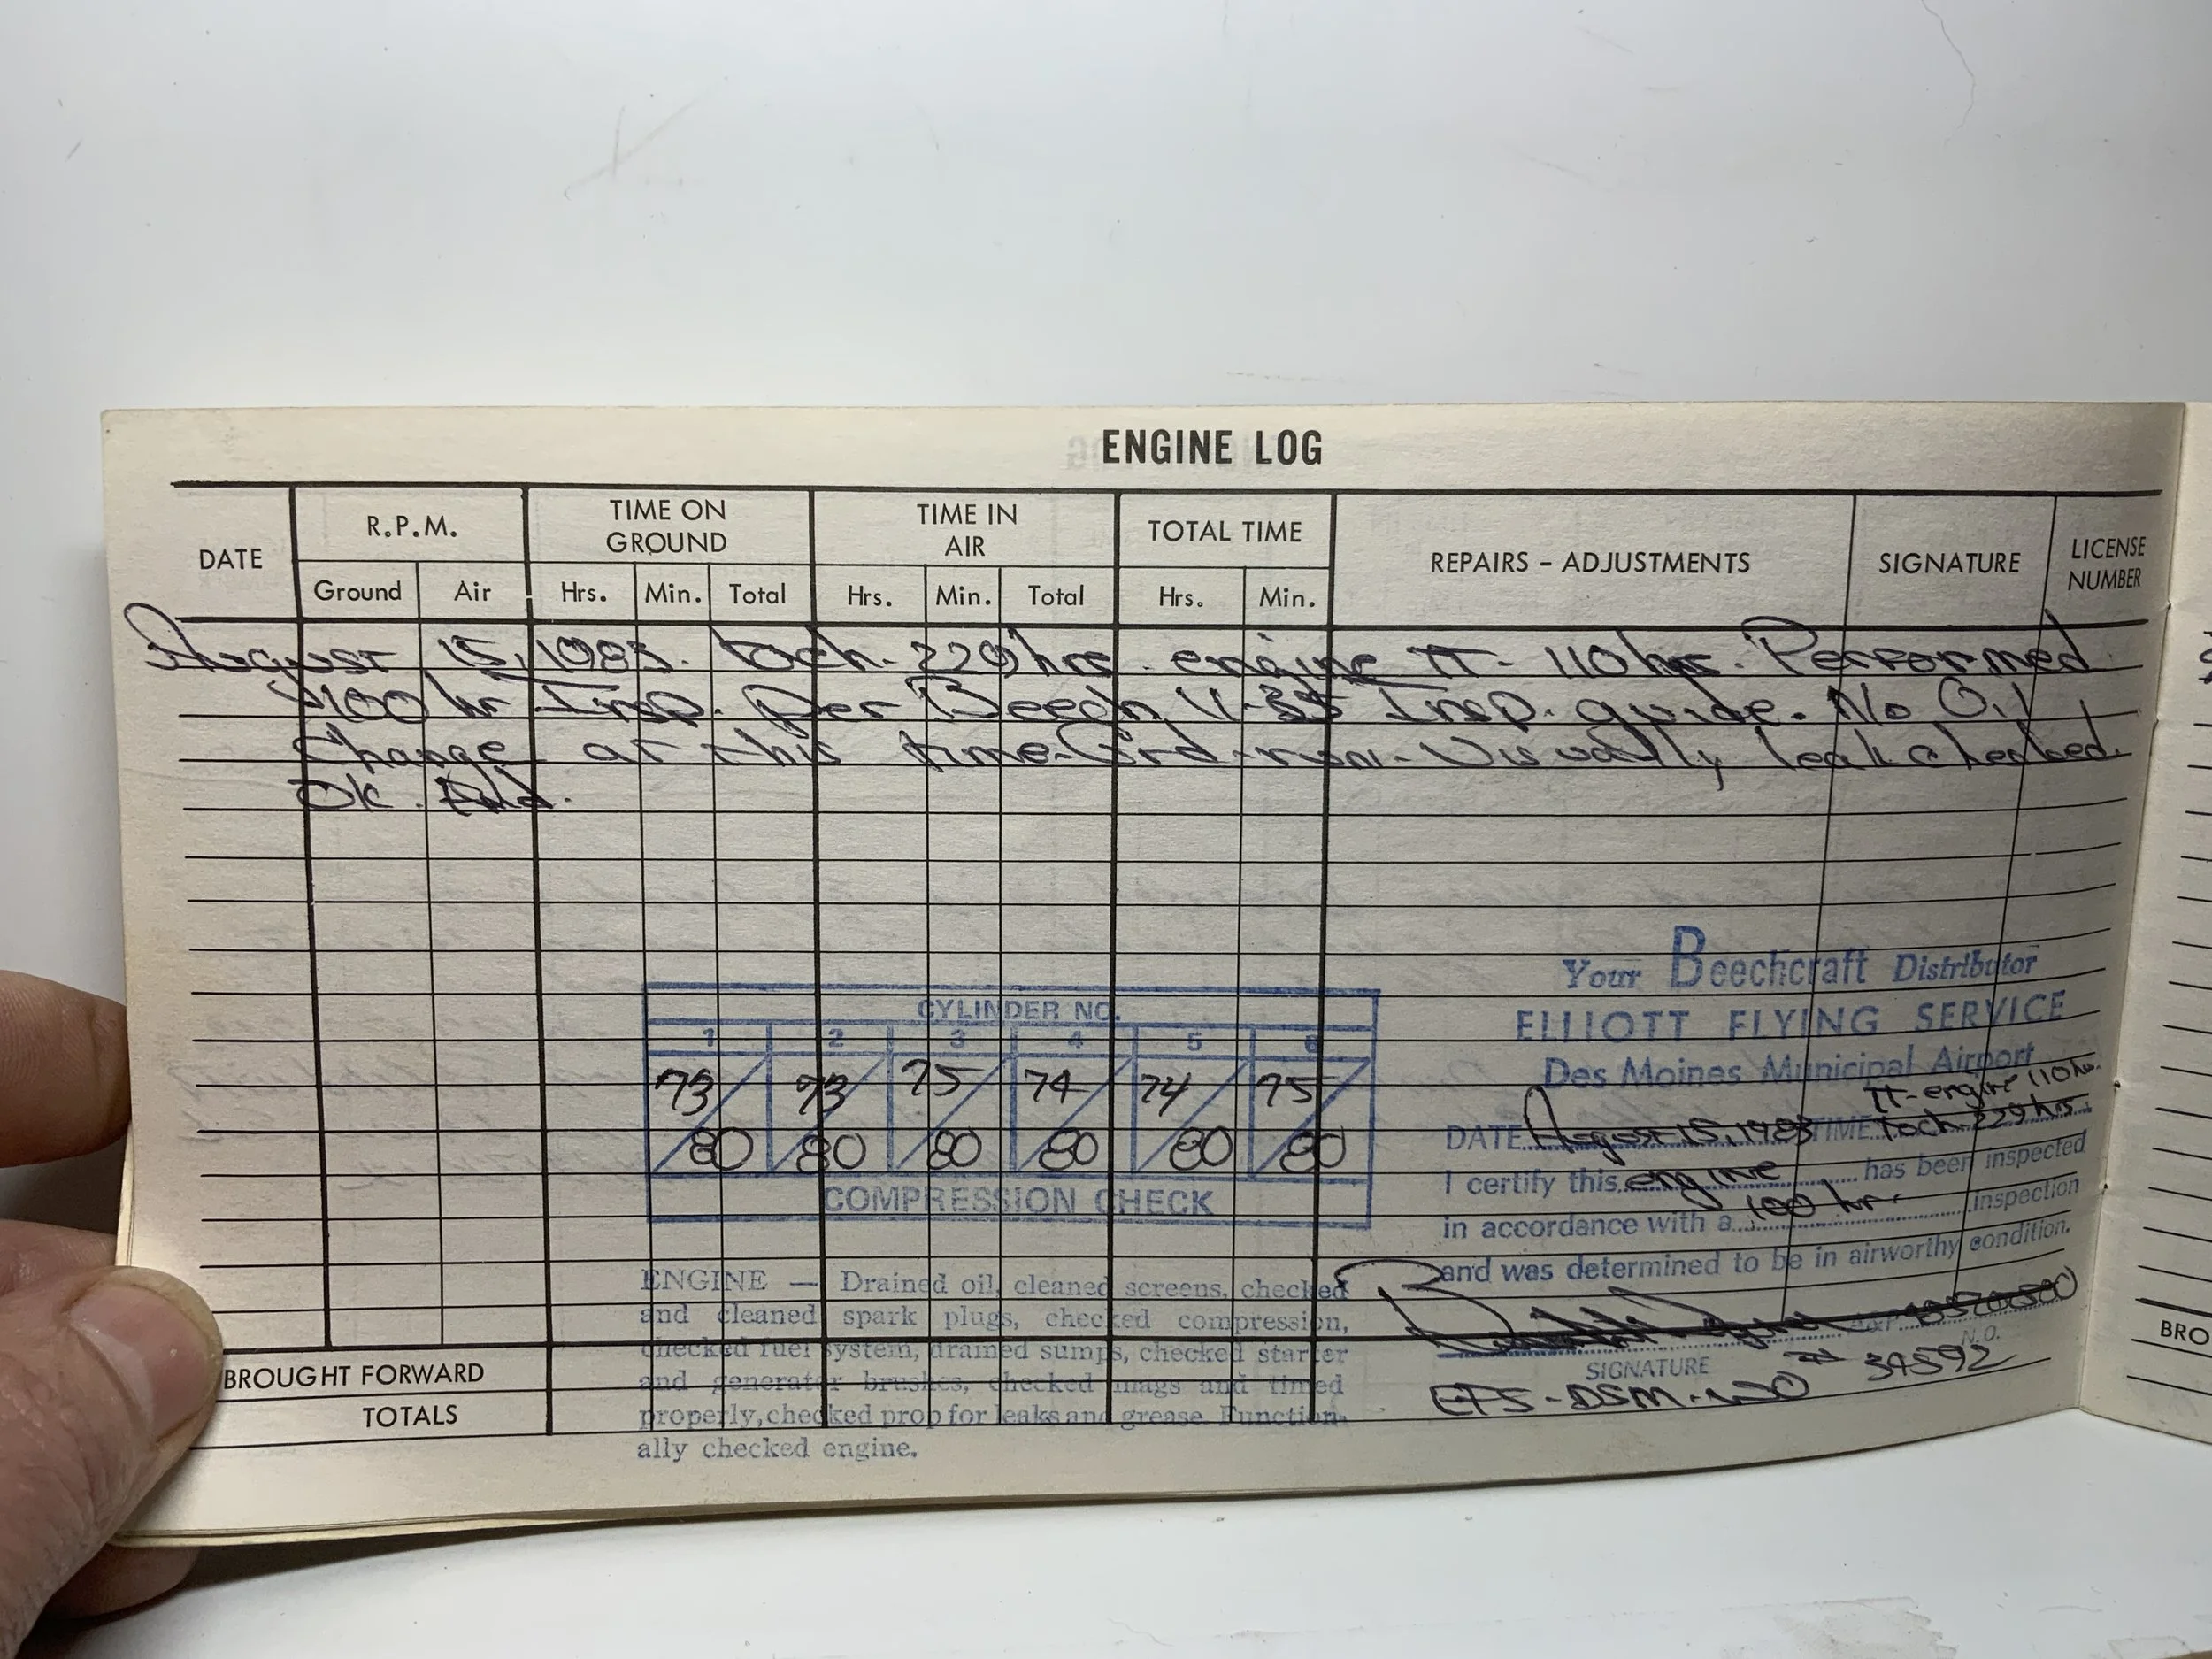 ENGINE LOG
DATE
R.P.M.
Ground Air
TIME ON GROUND
Hrs. Min. Total
TIME IN AIR
Hrs. Min. Total
TOTAL TIME
Hrs. Min.
REPAIRS - ADJUSTMENTS
SIGNATURE
LICENSE NUMBER
August 15, 1983. Tach-229 hrs. engine TT- 110 hrs. Performed
100 hr Insp. Per Beech Insp. guide. No Oil
change at this time. Grd-run. Visually leak checked
OK.
CYLINDER NO.
1 2 3 4 5 6
73/80 73/80 75/80 74/80 74/80 75/80
COMPRESSION CHECK
ENGINE — Drained oil, cleaned screens, checked
and cleaned spark plugs, checked compression,
checked fuel system, drained sumps, checked starter
and generator brushes, checked mags and timed
properly, checked prop for leaks and grease. Function-
ally checked engine.
Your Beechcraft Distributor
ELLIOTT FLYING SERVICE
Des Moines Municipal Airport
TT-engine 110 hrs.
DATE August 15, 1983 TIME Tach 229 hrs.
I certify this engine has been inspected
in accordance with a 100 hr. inspection
and was determined to be in airworthy condition.
A&P
SIGNATURE N.O.
EFS-DSM-WO 34592
BROUGHT FORWARD
TOTALS
BRO